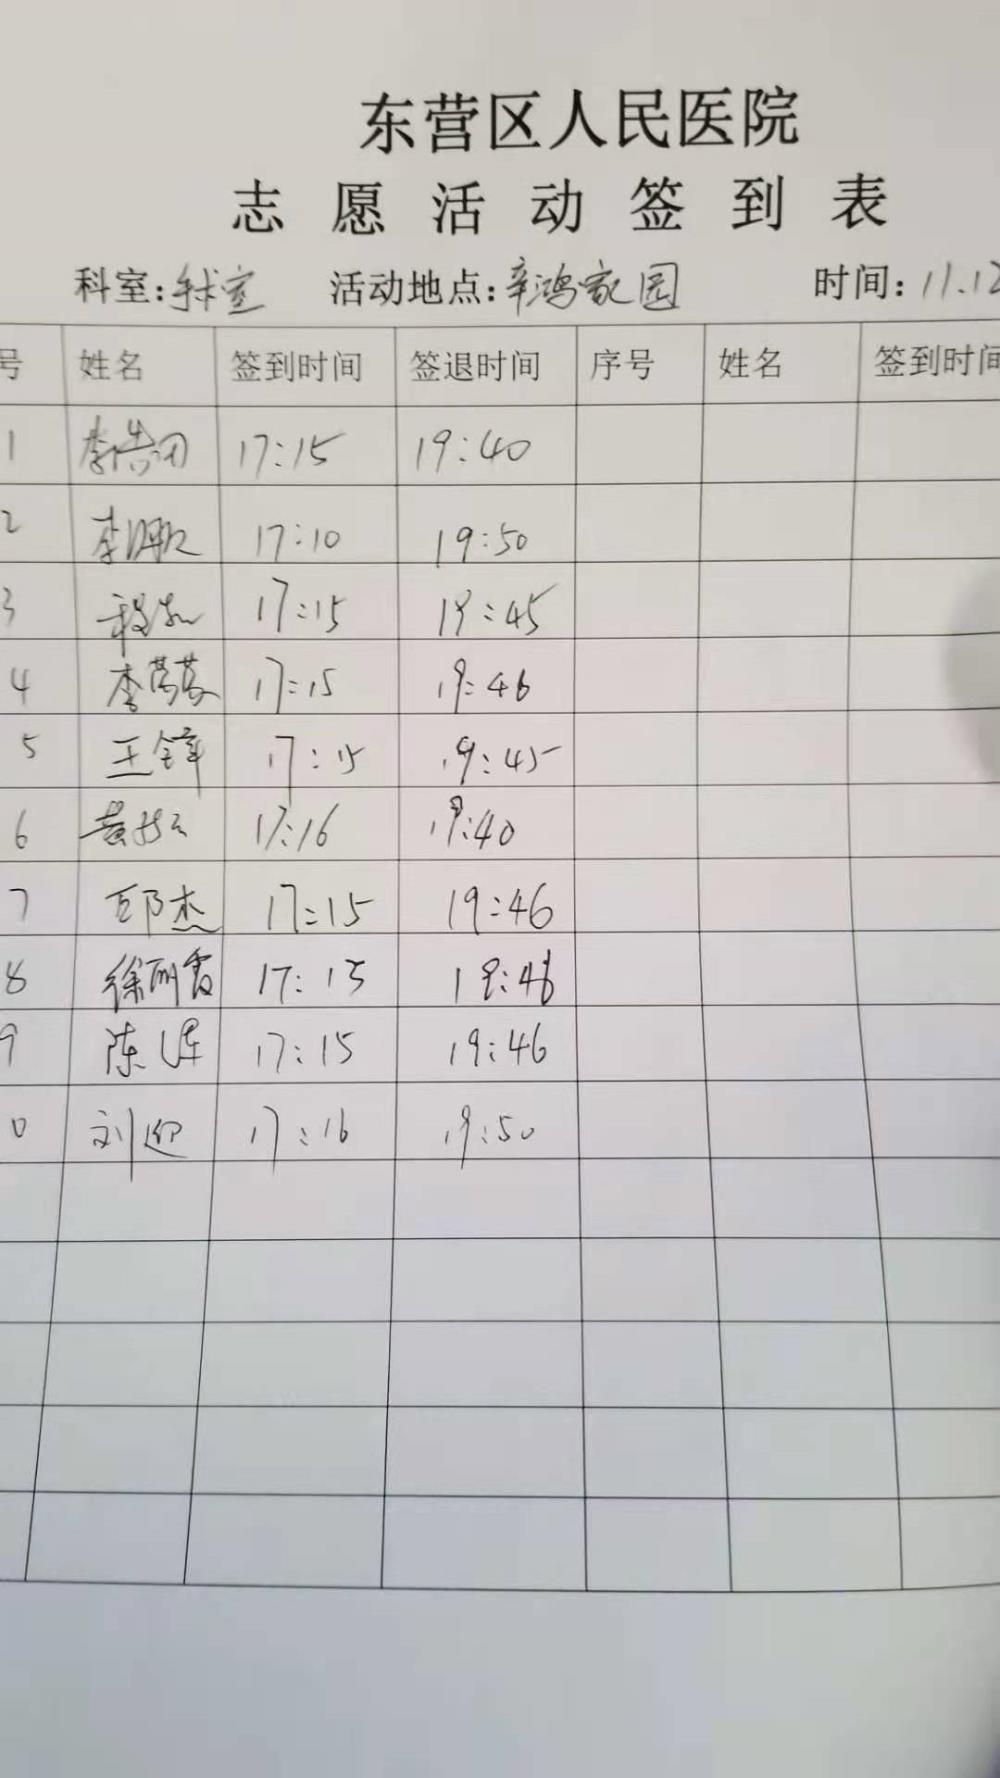 东营区人民医院
志愿活动签到表
科室:手术室 活动地点:辛鸿家园 时间:11.12
号 姓名 签到时间 签退时间 序号 姓名 签到时间
1 李浩田 17:15 19:40
2 李 17:10 19:50
3 17:15 19:45
4 李芬芬 17:15 19:46
5 王锋 17:15 19:45
6 黄 17:16 19:40
7 邱杰 17:15 19:46
8 徐丽霞 17:15 19:46
9 陈 17:15 19:46
0 刘迎 17:16 19:50